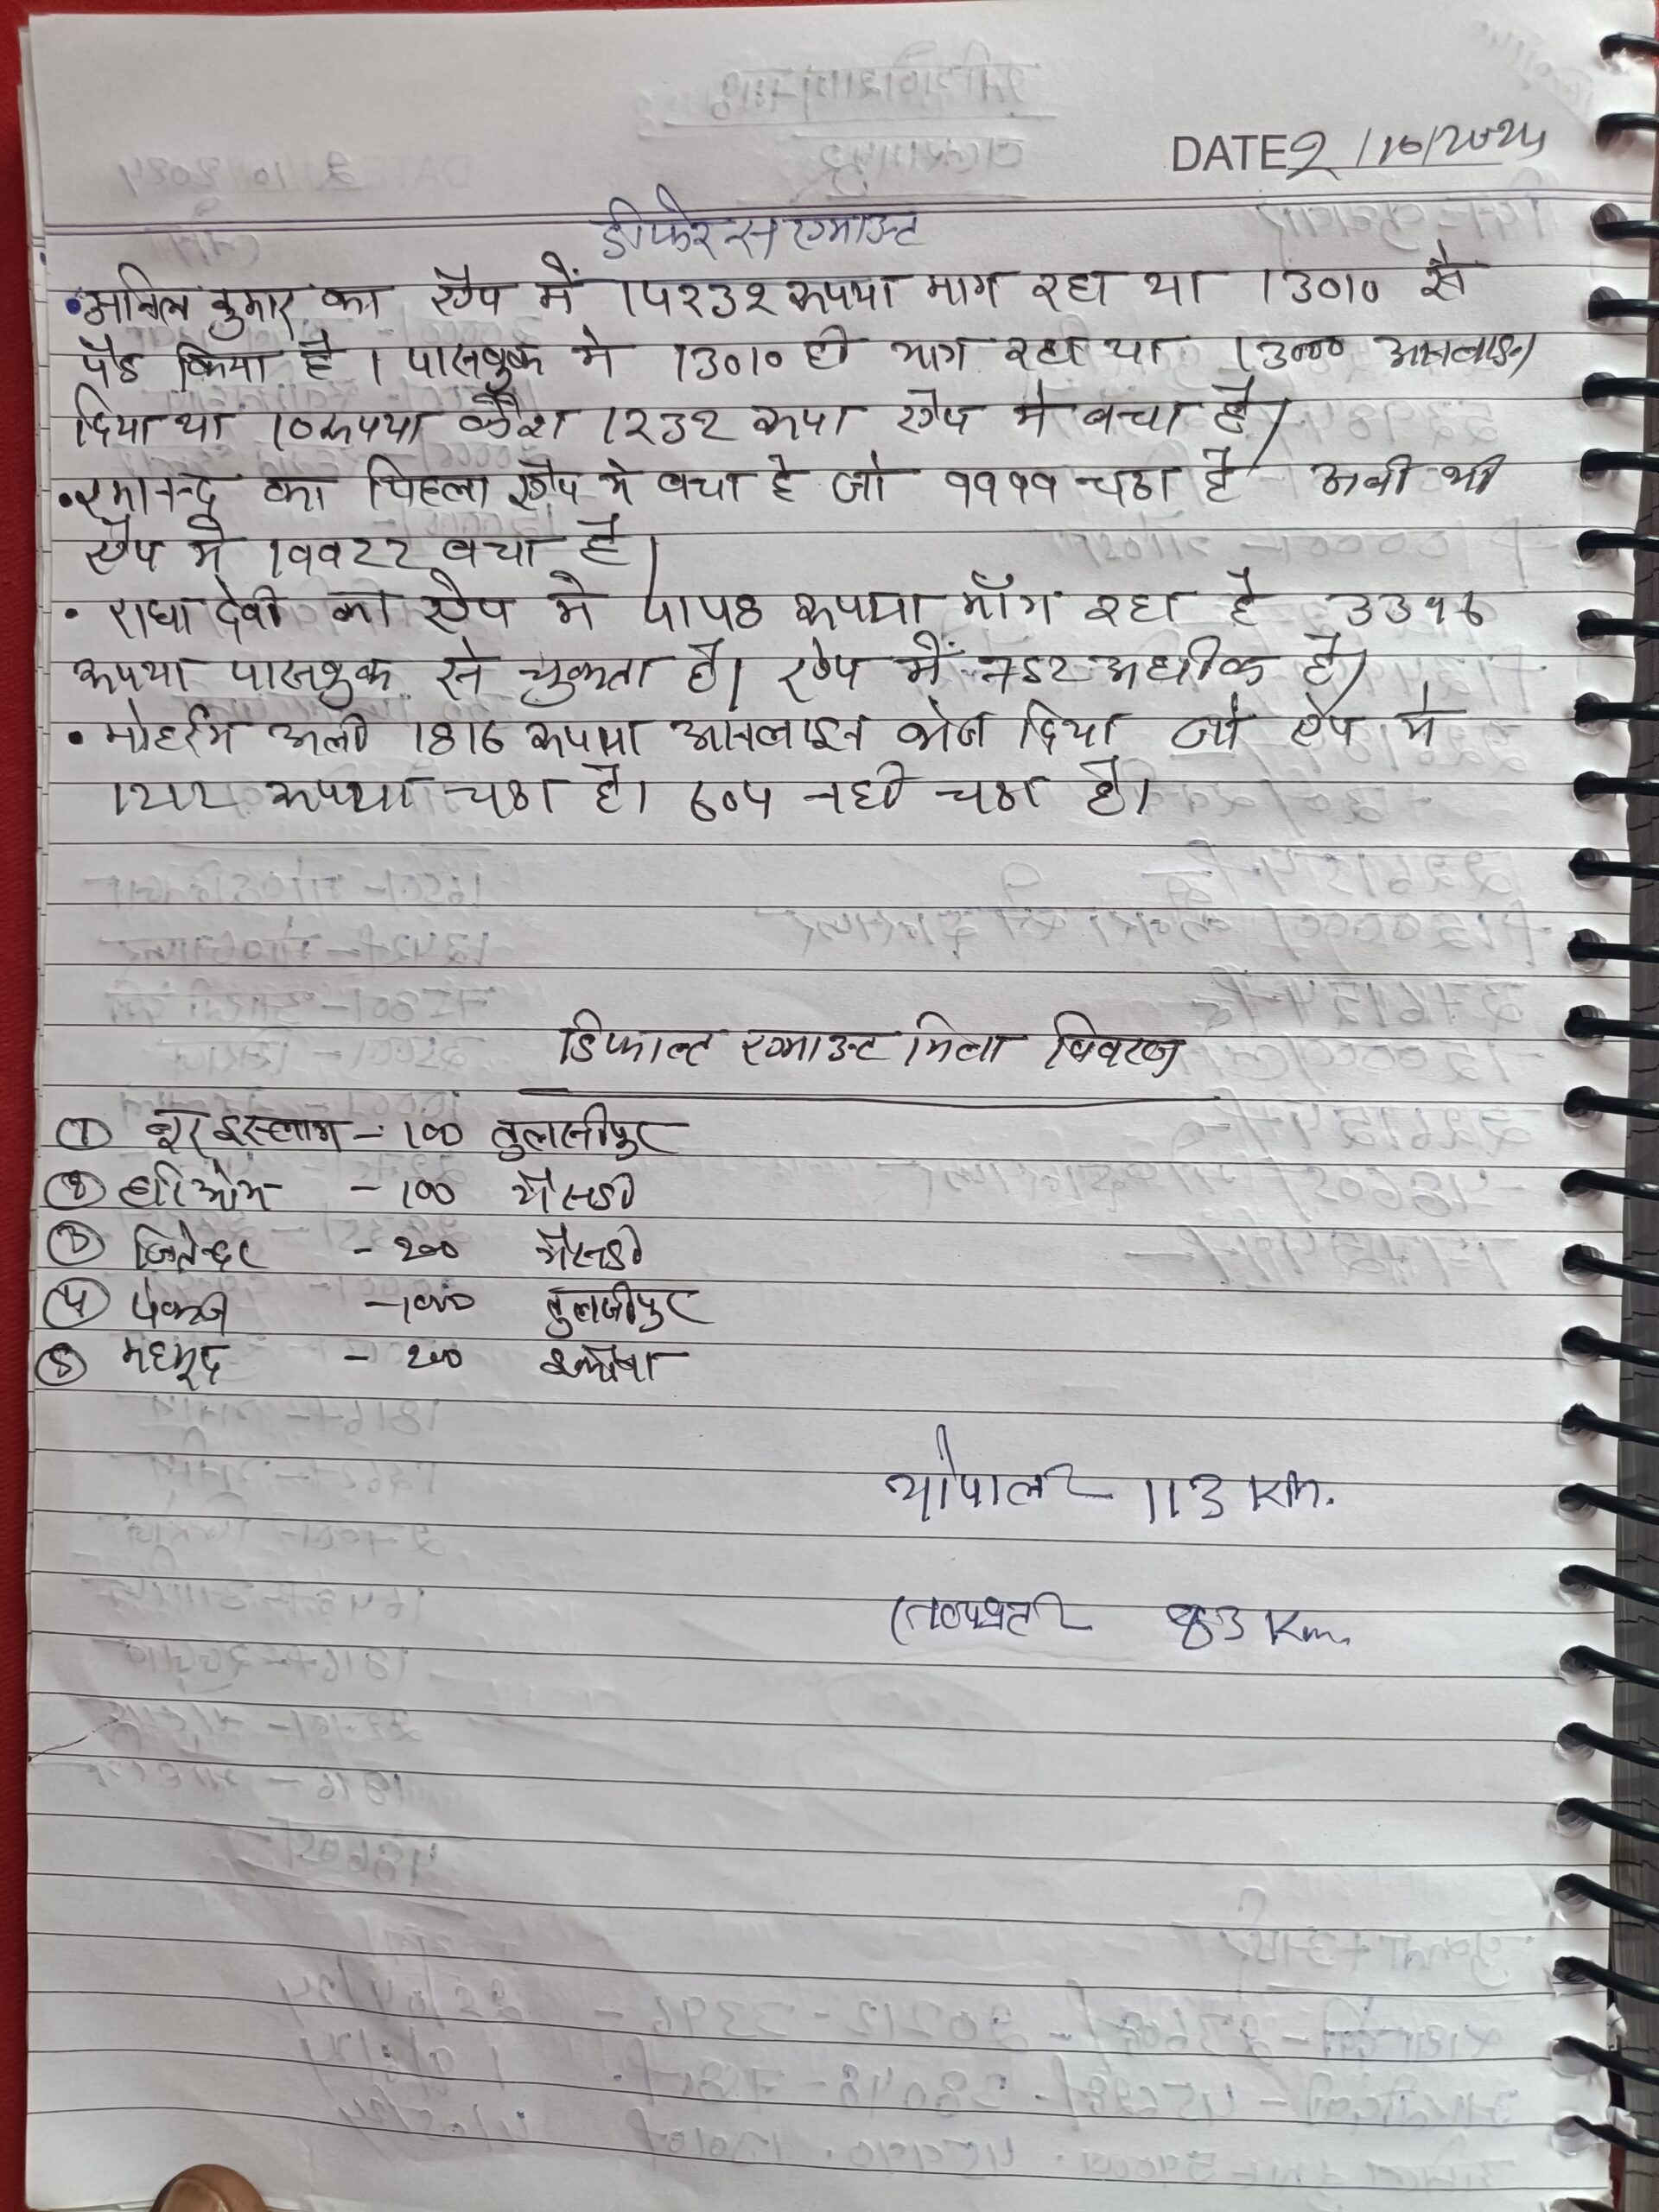 DATE 2/10/2024
डीफेरेन्स एमाउन्ट
• अनिल कुमार का एैप में 14232 रूपया माग रहा था 13010 से
पेड किया है। पासबुक मे 13010 ही माग रहा था 13000 आनलाइन
दिया था 10 रूपया कैश 1232 रूपया एैप मे बचा है।
• रमानन्द का पिहला एैप मे बचा है जो 9999 चढा है अबी भी
एैप मे बचा है।
• राधा देवी का एैप मे 4148 रूपया माँग रहा है 3396
रूपया पासबुक से चुकता है। एैप में 752 अधीक है।
• मोहर्रम अली 1816 रूपया आनलाइन भेज दिया जो एैप मे
1212 रूपया चढा है। 604 नही चढा है।
डिफाल्ट एमाउन्ट मिला विवरण
① नूर इस्लाम - 100 तुलसीपुर
② हरिओम - 100 भैसडी
③ जितेन्द्र - 200 भैसडी
④ पंकज - 1000 तुलसीपुर
⑤ महमूद - 200
गोपाल - 113 Km.
83 Km.